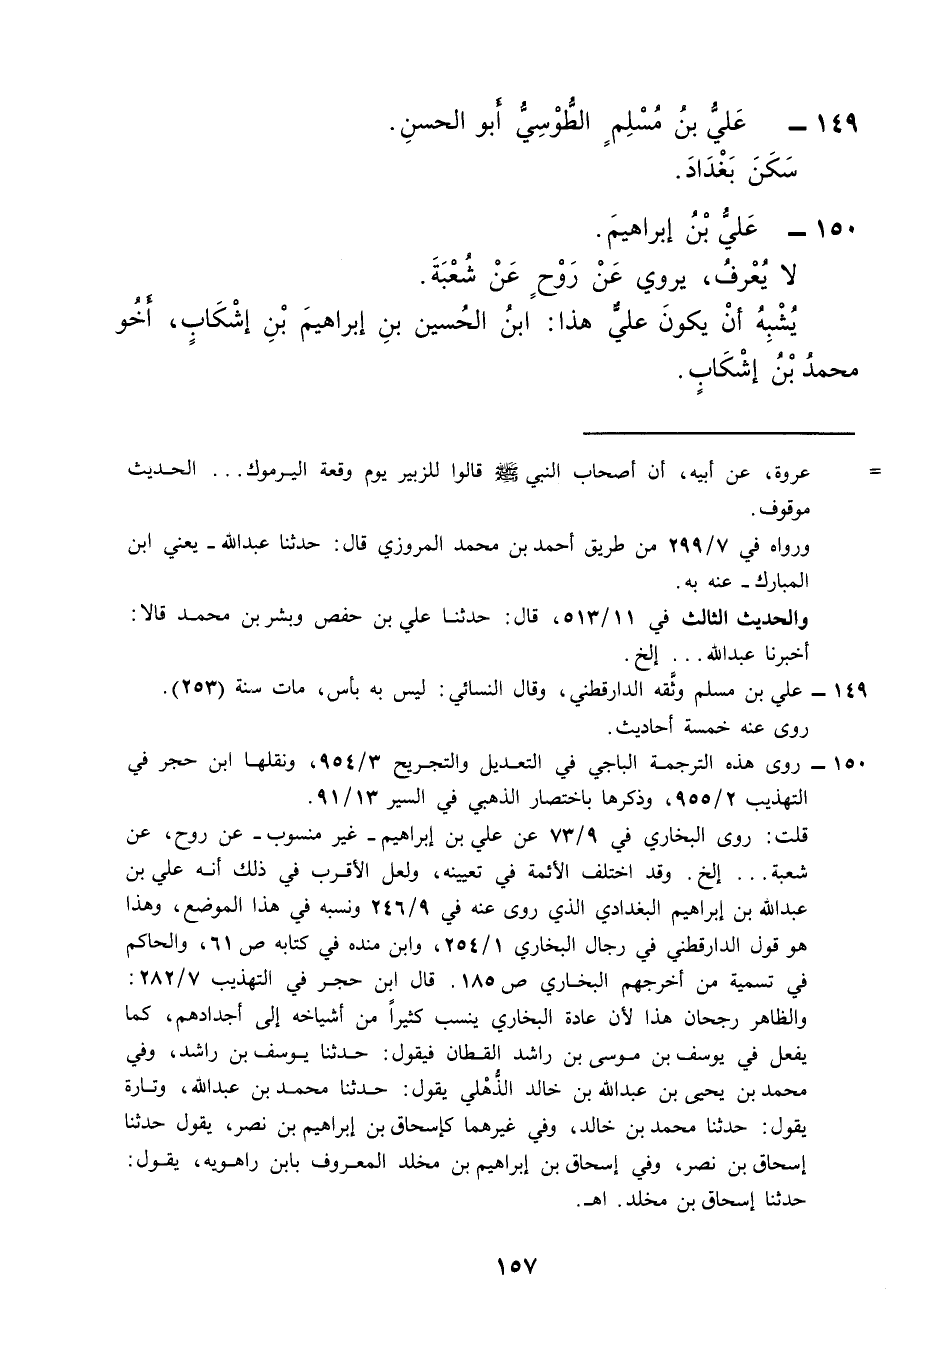 ١٤٩ ــ عَليُّ بنُ مُسْلِمٍ الطُّوْسِيُّ أَبو الحسنِ.
سَكَنَ بَغْدَادَ.
١٥٠ ــ عَليُّ بْنُ إبراهيمَ.
لا يُعْرفُ، يروي عَنْ رَوْحٍ عَنْ شُعْبَةَ.
يُشْبِهُ أنْ يكونَ عليٌّ هذا: ابنُ الحُسين بنِ إبراهيمَ بْنِ إشْكابٍ، أَخُو
محمدُ بْنُ إشْكَابٍ.
= عروة، عن أبيه، أن أصحاب النبي ﷺ قالوا للزبير يوم وقعة اليرموك... الحديث
موقوف.
ورواه في ٢٩٩/٧ من طريق أحمد بن محمد المروزي قال: حدثنا عبدالله ـ يعني ابن
المبارك ـ عنه به.
والحديث الثالث في ٥١٣/١١، قال: حدثنا علي بن حفص وبشر بن محمد قالا:
أخبرنا عبدالله... إلخ.
١٤٩ ــ علي بن مسلم وثَّقه الدارقطني، وقال النسائي: ليس به بأس، مات سنة (٢٥٣).
روى عنه خمسة أحاديث.
١٥٠ ــ روى هذه الترجمة الباجي في التعديل والتجريح ٩٥٤/٣، ونقلها ابن حجر في
التهذيب ٩٥٥/٢، وذكرها باختصار الذهبي في السير ٩١/١٣.
قلت: روى البخاري في ٧٣/٩ عن علي بن إبراهيم ـ غير منسوب ـ عن روح، عن
شعبة... إلخ. وقد اختلف الأئمة في تعيينه، ولعل الأقرب في ذلك أنه علي بن
عبدالله بن إبراهيم البغدادي الذي روى عنه في ٢٤٦/٩ ونسبه في هذا الموضع، وهذا
هو قول الدارقطني في رجال البخاري ٢٥٤/١، وابن منده في كتابه ص ٦١، والحاكم
في تسمية من أخرجهم البخاري ص ١٨٥. قال ابن حجر في التهذيب ٢٨٢/٧:
والظاهر رجحان هذا لأن عادة البخاري ينسب كثيراً من أشياخه إلى أجدادهم، كما
يفعل في يوسف بن موسى بن راشد القطان فيقول: حدثنا يوسف بن راشد، وفي
محمد بن يحيى بن عبدالله بن خالد الذُّهْلي يقول: حدثنا محمد بن عبدالله، وتارة
يقول: حدثنا محمد بن خالد، وفي غيرهما كإسحاق بن إبراهيم بن نصر، يقول حدثنا
إسحاق بن نصر، وفي إسحاق بن إبراهيم بن مخلد المعروف بابن راهويه، يقول:
حدثنا إسحاق بن مخلد. اهـ.
١٥٧